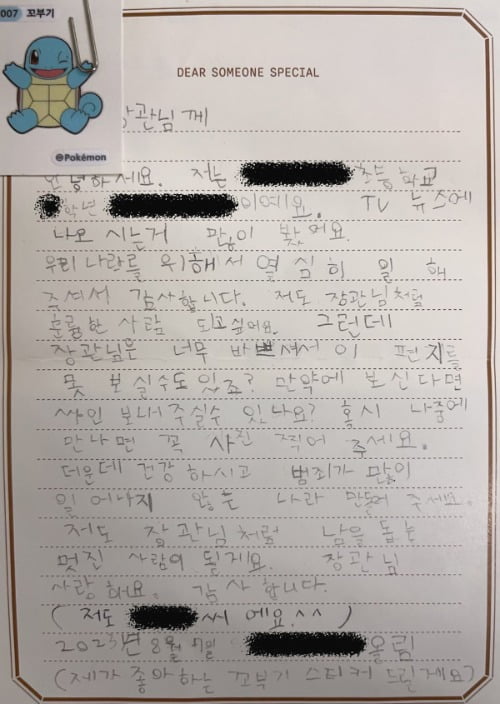 007 꼬부기
©Pokémon
DEAR SOMEONE SPECIAL
장관님께
안녕하세요. 저는 초등학교
학년 이예요. TV 뉴스에
나오시는거 많이 봤어요.
우리 나라를 위해서 열심히 일 해
주셔서 감사합니다. 저도 장관님처럼
훌륭한 사람 되고싶어요. 그런데
장관님은 너무 바쁘셔서 이 편지를
못 보실수도 있죠? 만약에 보신다면
싸인 보내주실수 있나요? 혹시 나중에
만나면 꼭 사진 찍어 주세요.
더운데 건강하시고 범죄가 많이
일어나지 않는 나라 만들어 주세요.
저도 장관님처럼 남을 돕는
멋진 사람이 될게요. 장관님
사랑해요. 감사합니다.
(저도 씨 에요.^^)
2023년 8월 7일 올림
(제가 좋아하는 꼬부기 스티커 드릴게요)